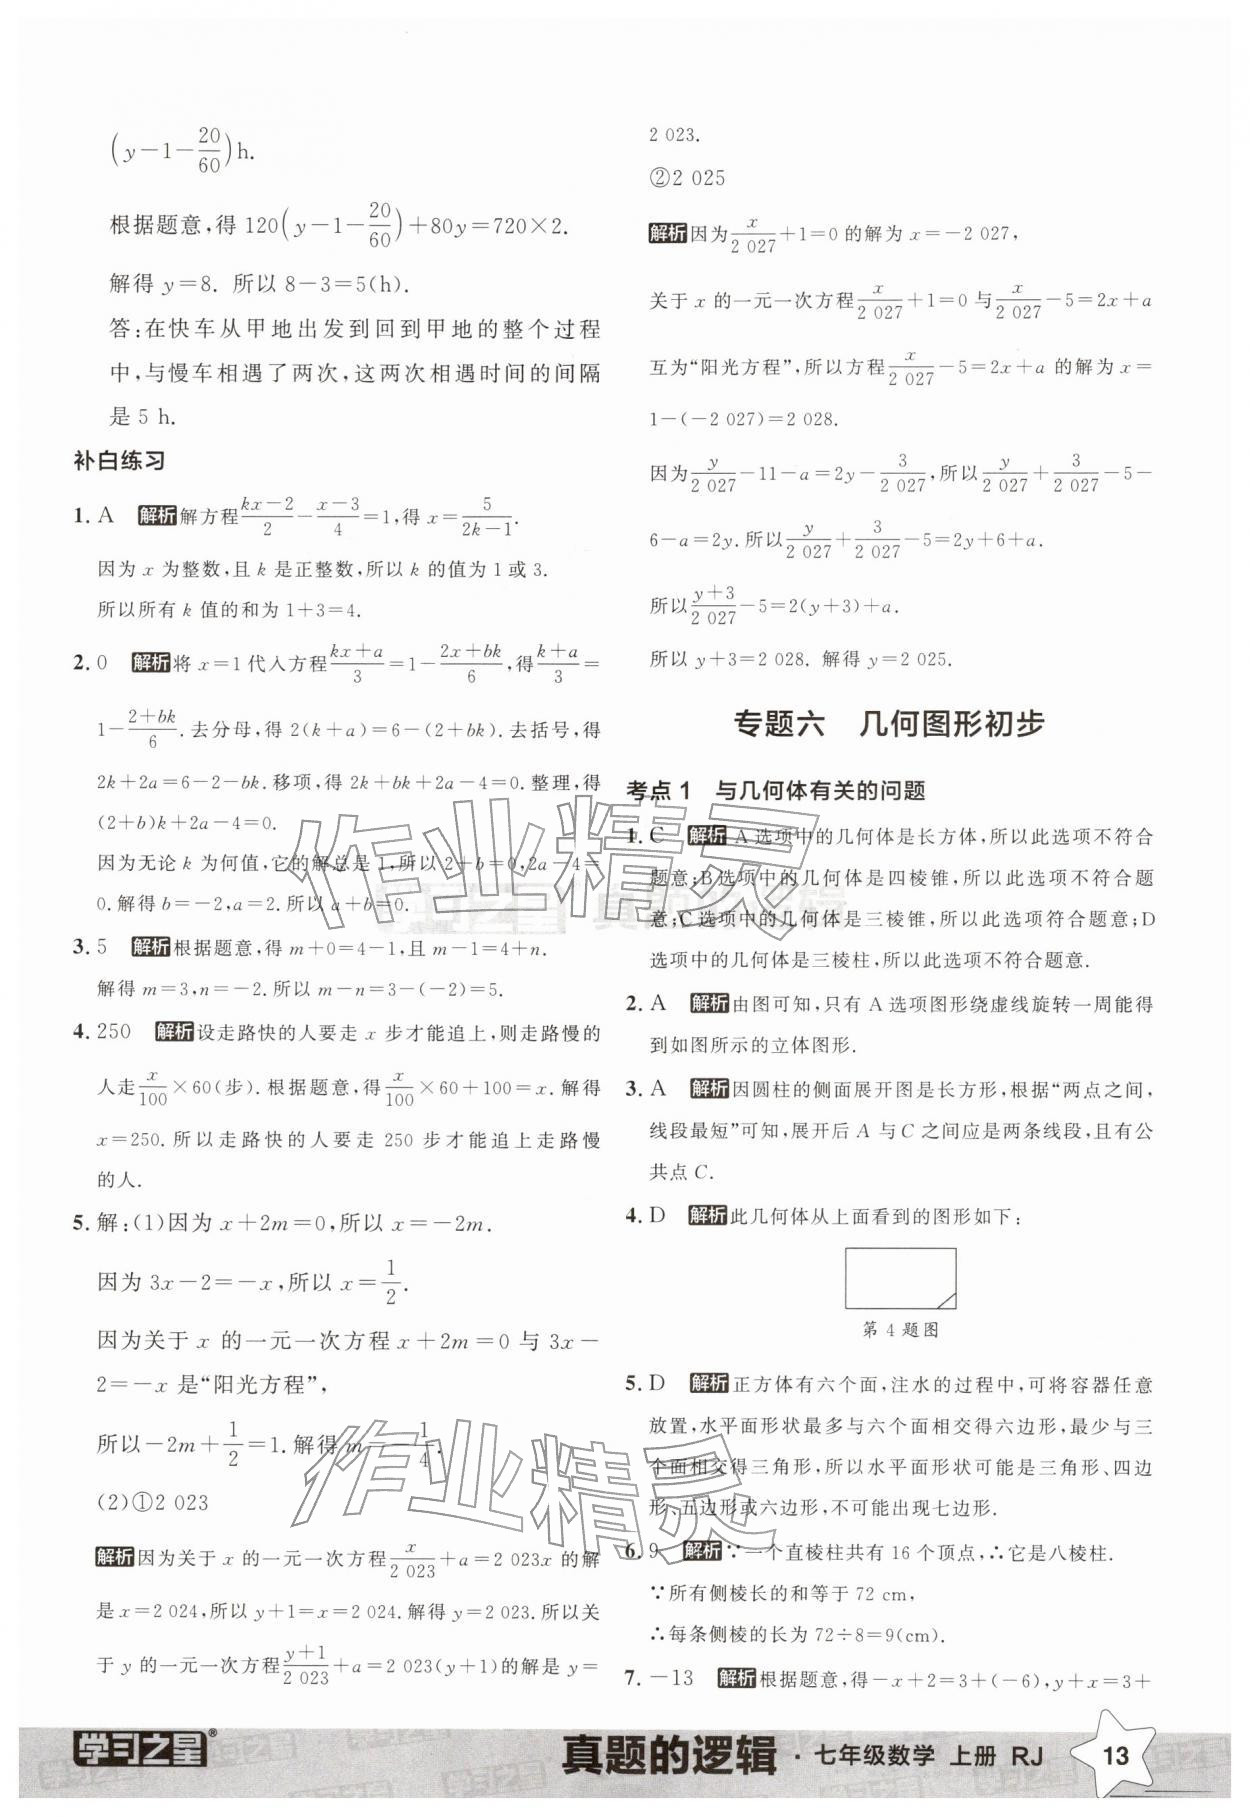 (y−1−20/60)h.
根据题意,得 120(y−1−20/60)+80y=720×2.
解得 y=8. 所以 8−3=5(h).
答:在快车从甲地出发到回到甲地的整个过程
中,与慢车相遇了两次,这两次相遇时间的间隔
是 5 h.
补白练习
1. A 解析 解方程(kx−2)/2−(x−3)/4=1,得 x=5/(2k−1).
因为 x 为整数,且 k 是正整数,所以 k 的值为 1 或 3.
所以所有 k 值的和为 1+3=4.
2. 0 解析 将 x=1 代入方程(kx+a)/3=1−(2x+bk)/6,得(k+a)/3=
1−(2+bk)/6.去分母,得 2(k+a)=6−(2+bk).去括号,得
2k+2a=6−2−bk.移项,得 2k+bk+2a−4=0.整理,得
(2+b)k+2a−4=0.
因为无论 k 为何值,它的解总是 1,所以 2+b=0,2a−4=
0.解得 b=−2,a=2.所以 a+b=0.
3. 5 解析 根据题意,得 m+0=4−1,且 m−1=4+n.
解得 m=3,n=−2.所以 m−n=3−(−2)=5.
4. 250 解析 设走路快的人要走 x 步才能追上,则走路慢的
人走x/100×60(步).根据题意,得x/100×60+100=x.解得
x=250.所以走路快的人要走 250 步才能追上走路慢
的人.
5. 解:(1)因为 x+2m=0,所以 x=−2m.
因为 3x−2=−x,所以 x=1/2.
因为关于 x 的一元一次方程 x+2m=0 与 3x−
2=−x 是“阳光方程”,
所以−2m+1/2=1.解得 m=−1/4.
(2)①2 023
解析 因为关于 x 的一元一次方程x/2 023+a=2 023x 的解
是 x=2 024,所以 y+1=x=2 024.解得 y=2 023.所以关
于 y 的一元一次方程(y+1)/2 023+a=2 023(y+1)的解是 y=
2 023.
②2 025
解析 因为x/2 027+1=0 的解为 x=−2 027,
关于 x 的一元一次方程x/2 027+1=0 与x/2 027−5=2x+a
互为“阳光方程”,所以方程x/2 027−5=2x+a 的解为 x=
1−(−2 027)=2 028.
因为y/2 027−11−a=2y−3/2 027,所以y/2 027+3/2 027−5−
6−a=2y.所以y/2 027+3/2 027−5=2y+6+a.
所以(y+3)/2 027−5=2(y+3)+a.
所以 y+3=2 028. 解得 y=2 025.
专题六 几何图形初步
考点 1 与几何体有关的问题
1. C 解析 A 选项中的几何体是长方体,所以此选项不符合
题意;B 选项中的几何体是四棱锥,所以此选项不符合题
意;C 选项中的几何体是三棱锥,所以此选项符合题意;D
选项中的几何体是三棱柱,所以此选项不符合题意.
2. A 解析 由图可知,只有 A 选项图形绕虚线旋转一周能得
到如图所示的立体图形.
3. A 解析 因圆柱的侧面展开图是长方形,根据“两点之间,
线段最短”可知,展开后 A 与 C 之间应是两条线段,且有公
共点 C.
4. D 解析 此几何体从上面看到的图形如下:
第 4 题图
5. D 解析 正方体有六个面,注水的过程中,可将容器任意
放置,水平面形状最多与六个面相交得六边形,最少与三
个面相交得三角形,所以水平面形状可能是三角形、四边
形、五边形或六边形,不可能出现七边形.
6. 9 解析 ∵一个直棱柱共有 16 个顶点,∴它是八棱柱.
∵所有侧棱长的和等于 72 cm,
∴每条侧棱的长为 72÷8=9(cm).
7. −13 解析 根据题意,得−x+2=3+(−6),y+x=3+
作业精灵
学习之星 真题的逻辑
作业精灵
学习之星® 真题的逻辑 · 七年级数学 上册 RJ 13